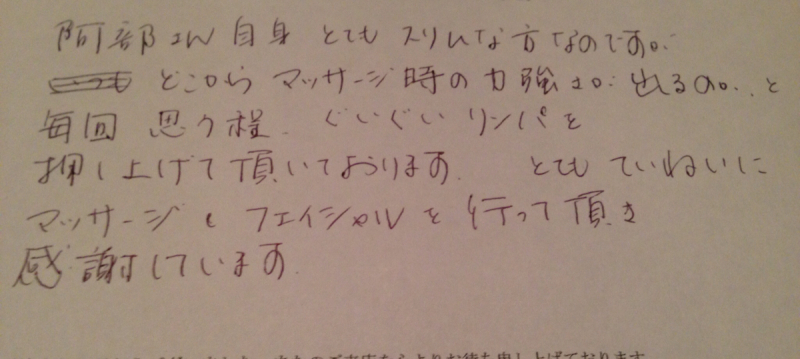 阿部さん自身 とても スリムな方なのですが
どこから マッサージ時の力強さが 出るのか、と
毎回 思う程、ぐいぐい リンパを
押し上げて頂いております。 とても ていねいに
マッサージ、フェイシャルを 行って頂き
感謝しています。
お待ち申し上げております